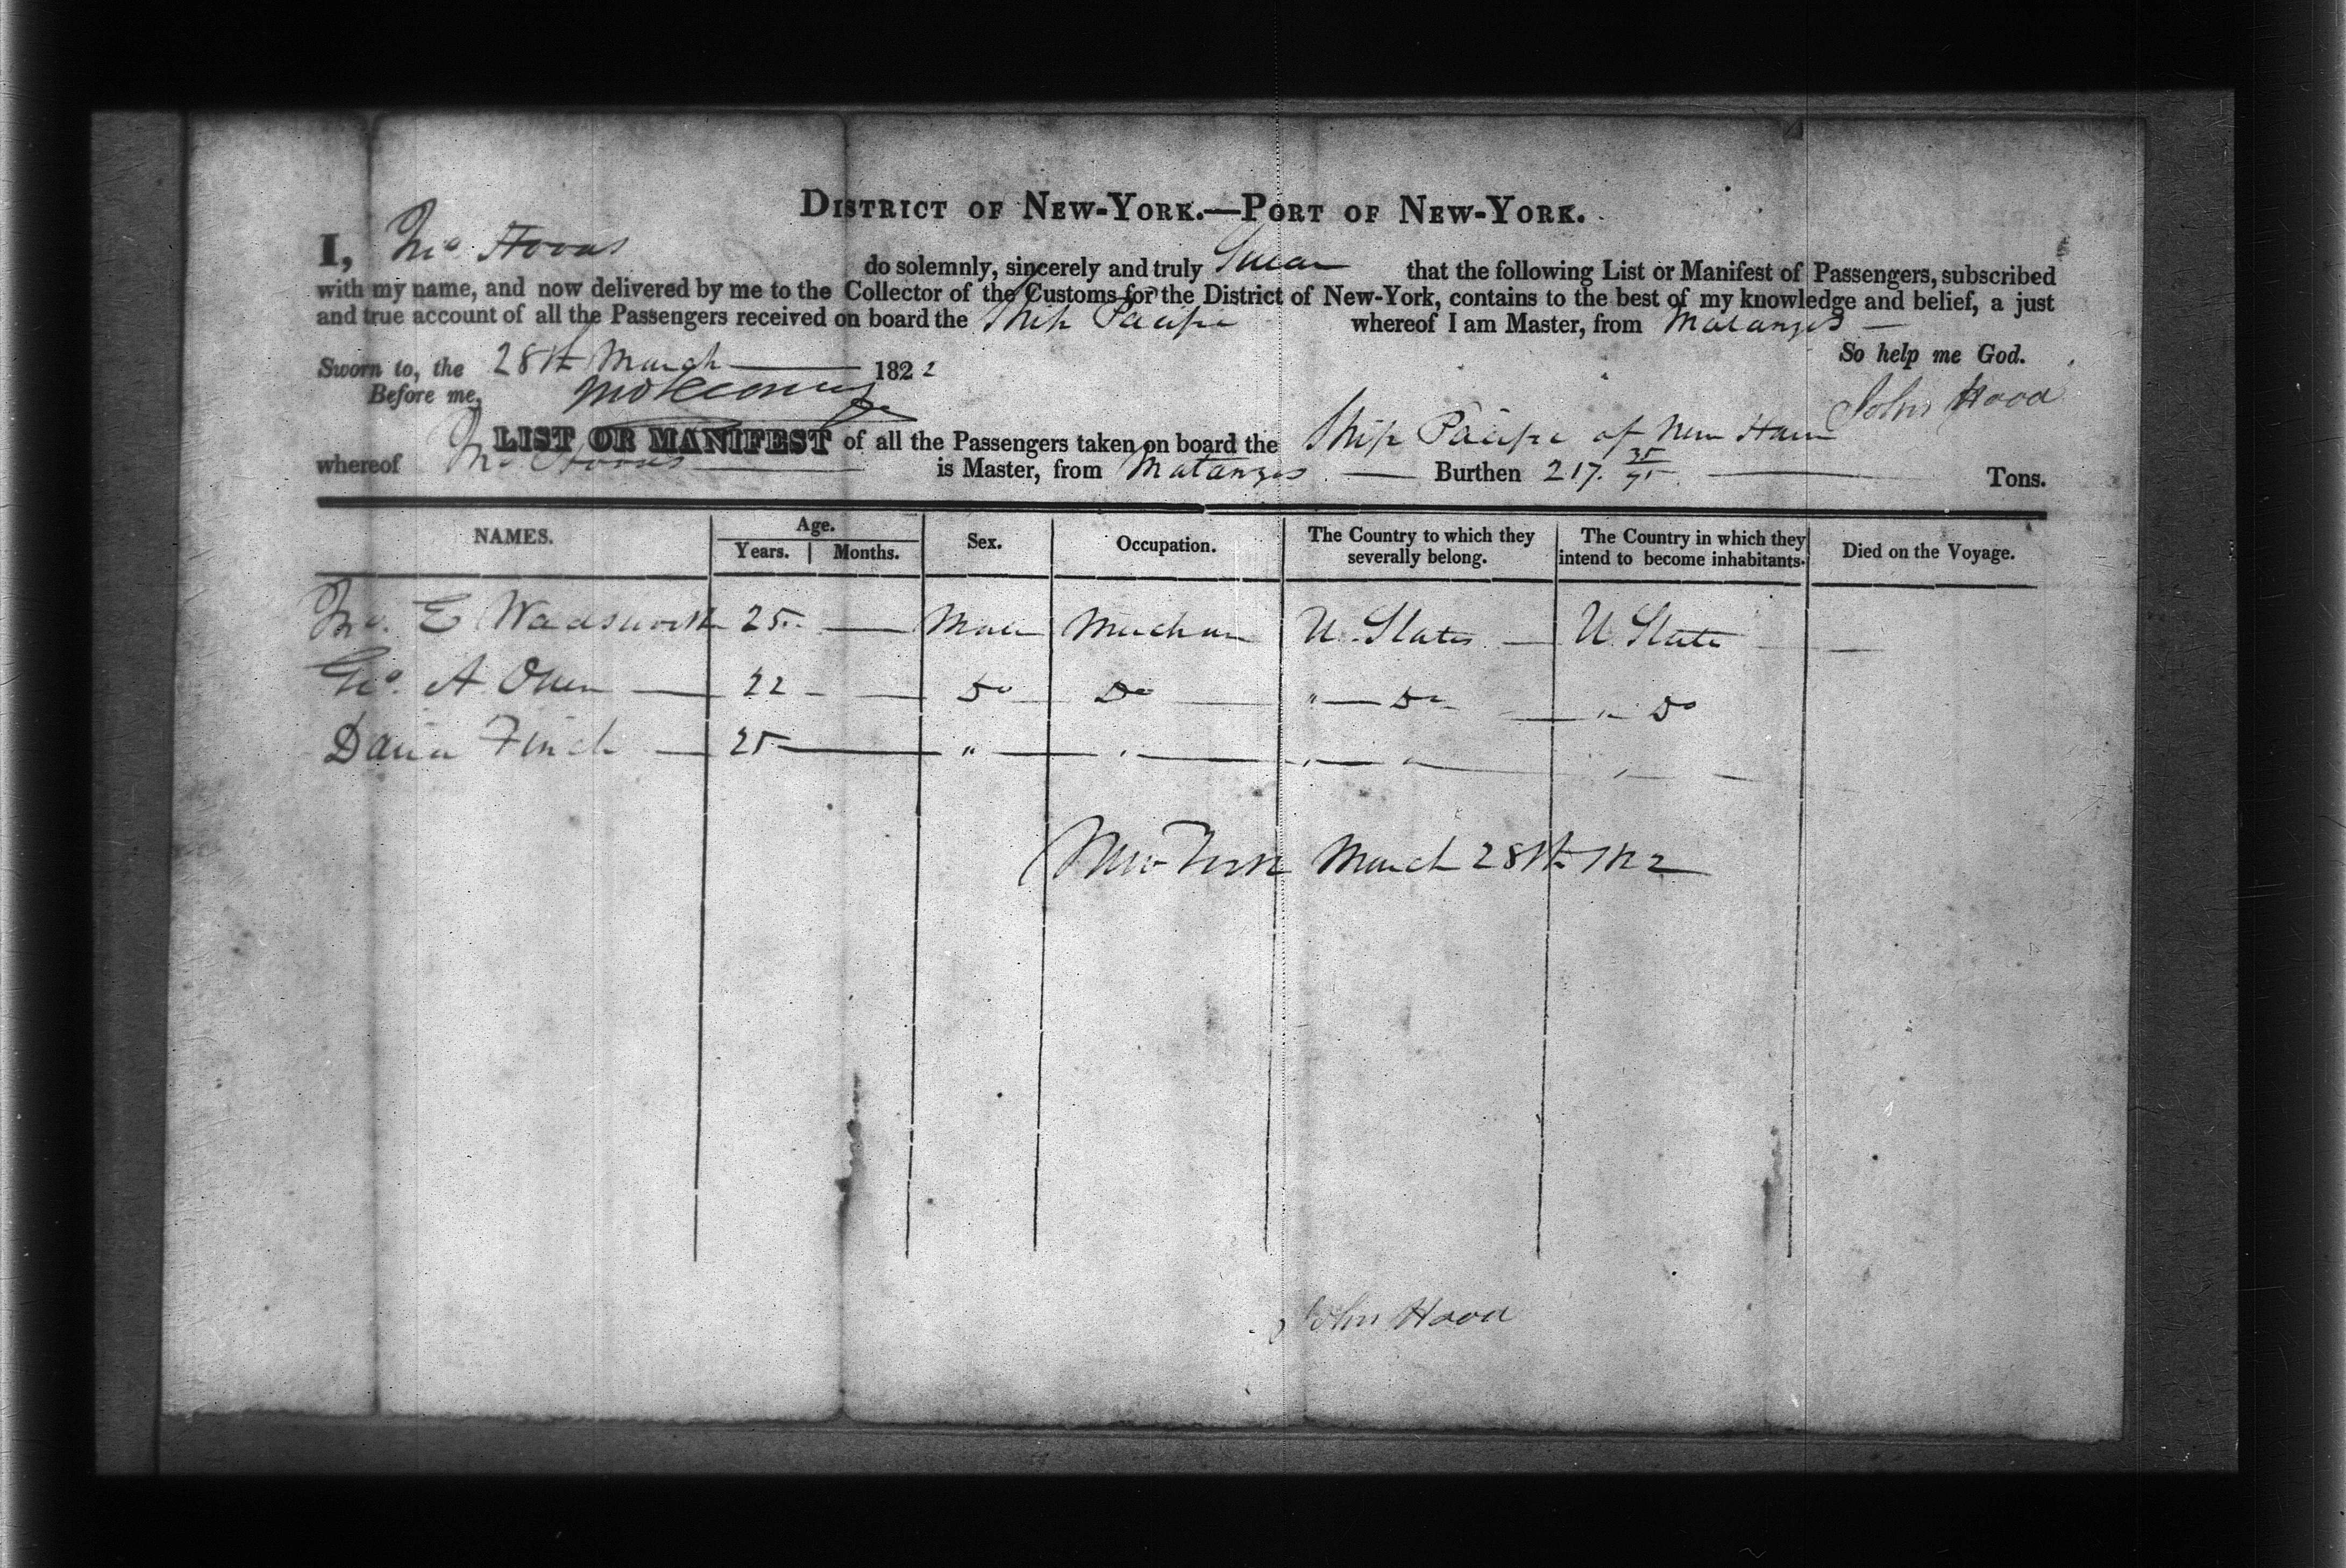 DISTRICT OF NEW-YORK.—PORT OF NEW-YORK.
I, Jno. Hood do solemnly, sincerely and truly Swear that the following List or Manifest of Passengers, subscribed
with my name, and now delivered by me to the Collector of the Customs for the District of New-York, contains to the best of my knowledge and belief, a just
and true account of all the Passengers received on board the Ship Pacific whereof I am Master, from Matanzas
So help me God.
Sworn to, the 28th March 1822
Before me,
John Hood
LIST OR MANIFEST of all the Passengers taken on board the Ship Pacific of New Haven
whereof Jno. Hood is Master, from Matanzas Burthen 217. 35/95 Tons.
NAMES. Age. Years. Months. Sex. Occupation. The Country to which they severally belong. The Country in which they intend to become inhabitants. Died on the Voyage.
Jno. E Wadsworth 25 — Male Merchant U. States — U State —
Geo. A. Olien — 22 — Do Do " — Do — " Do
David Finch — 25 — " — " — " — " — " —
New York March 28th 1822
John Hood